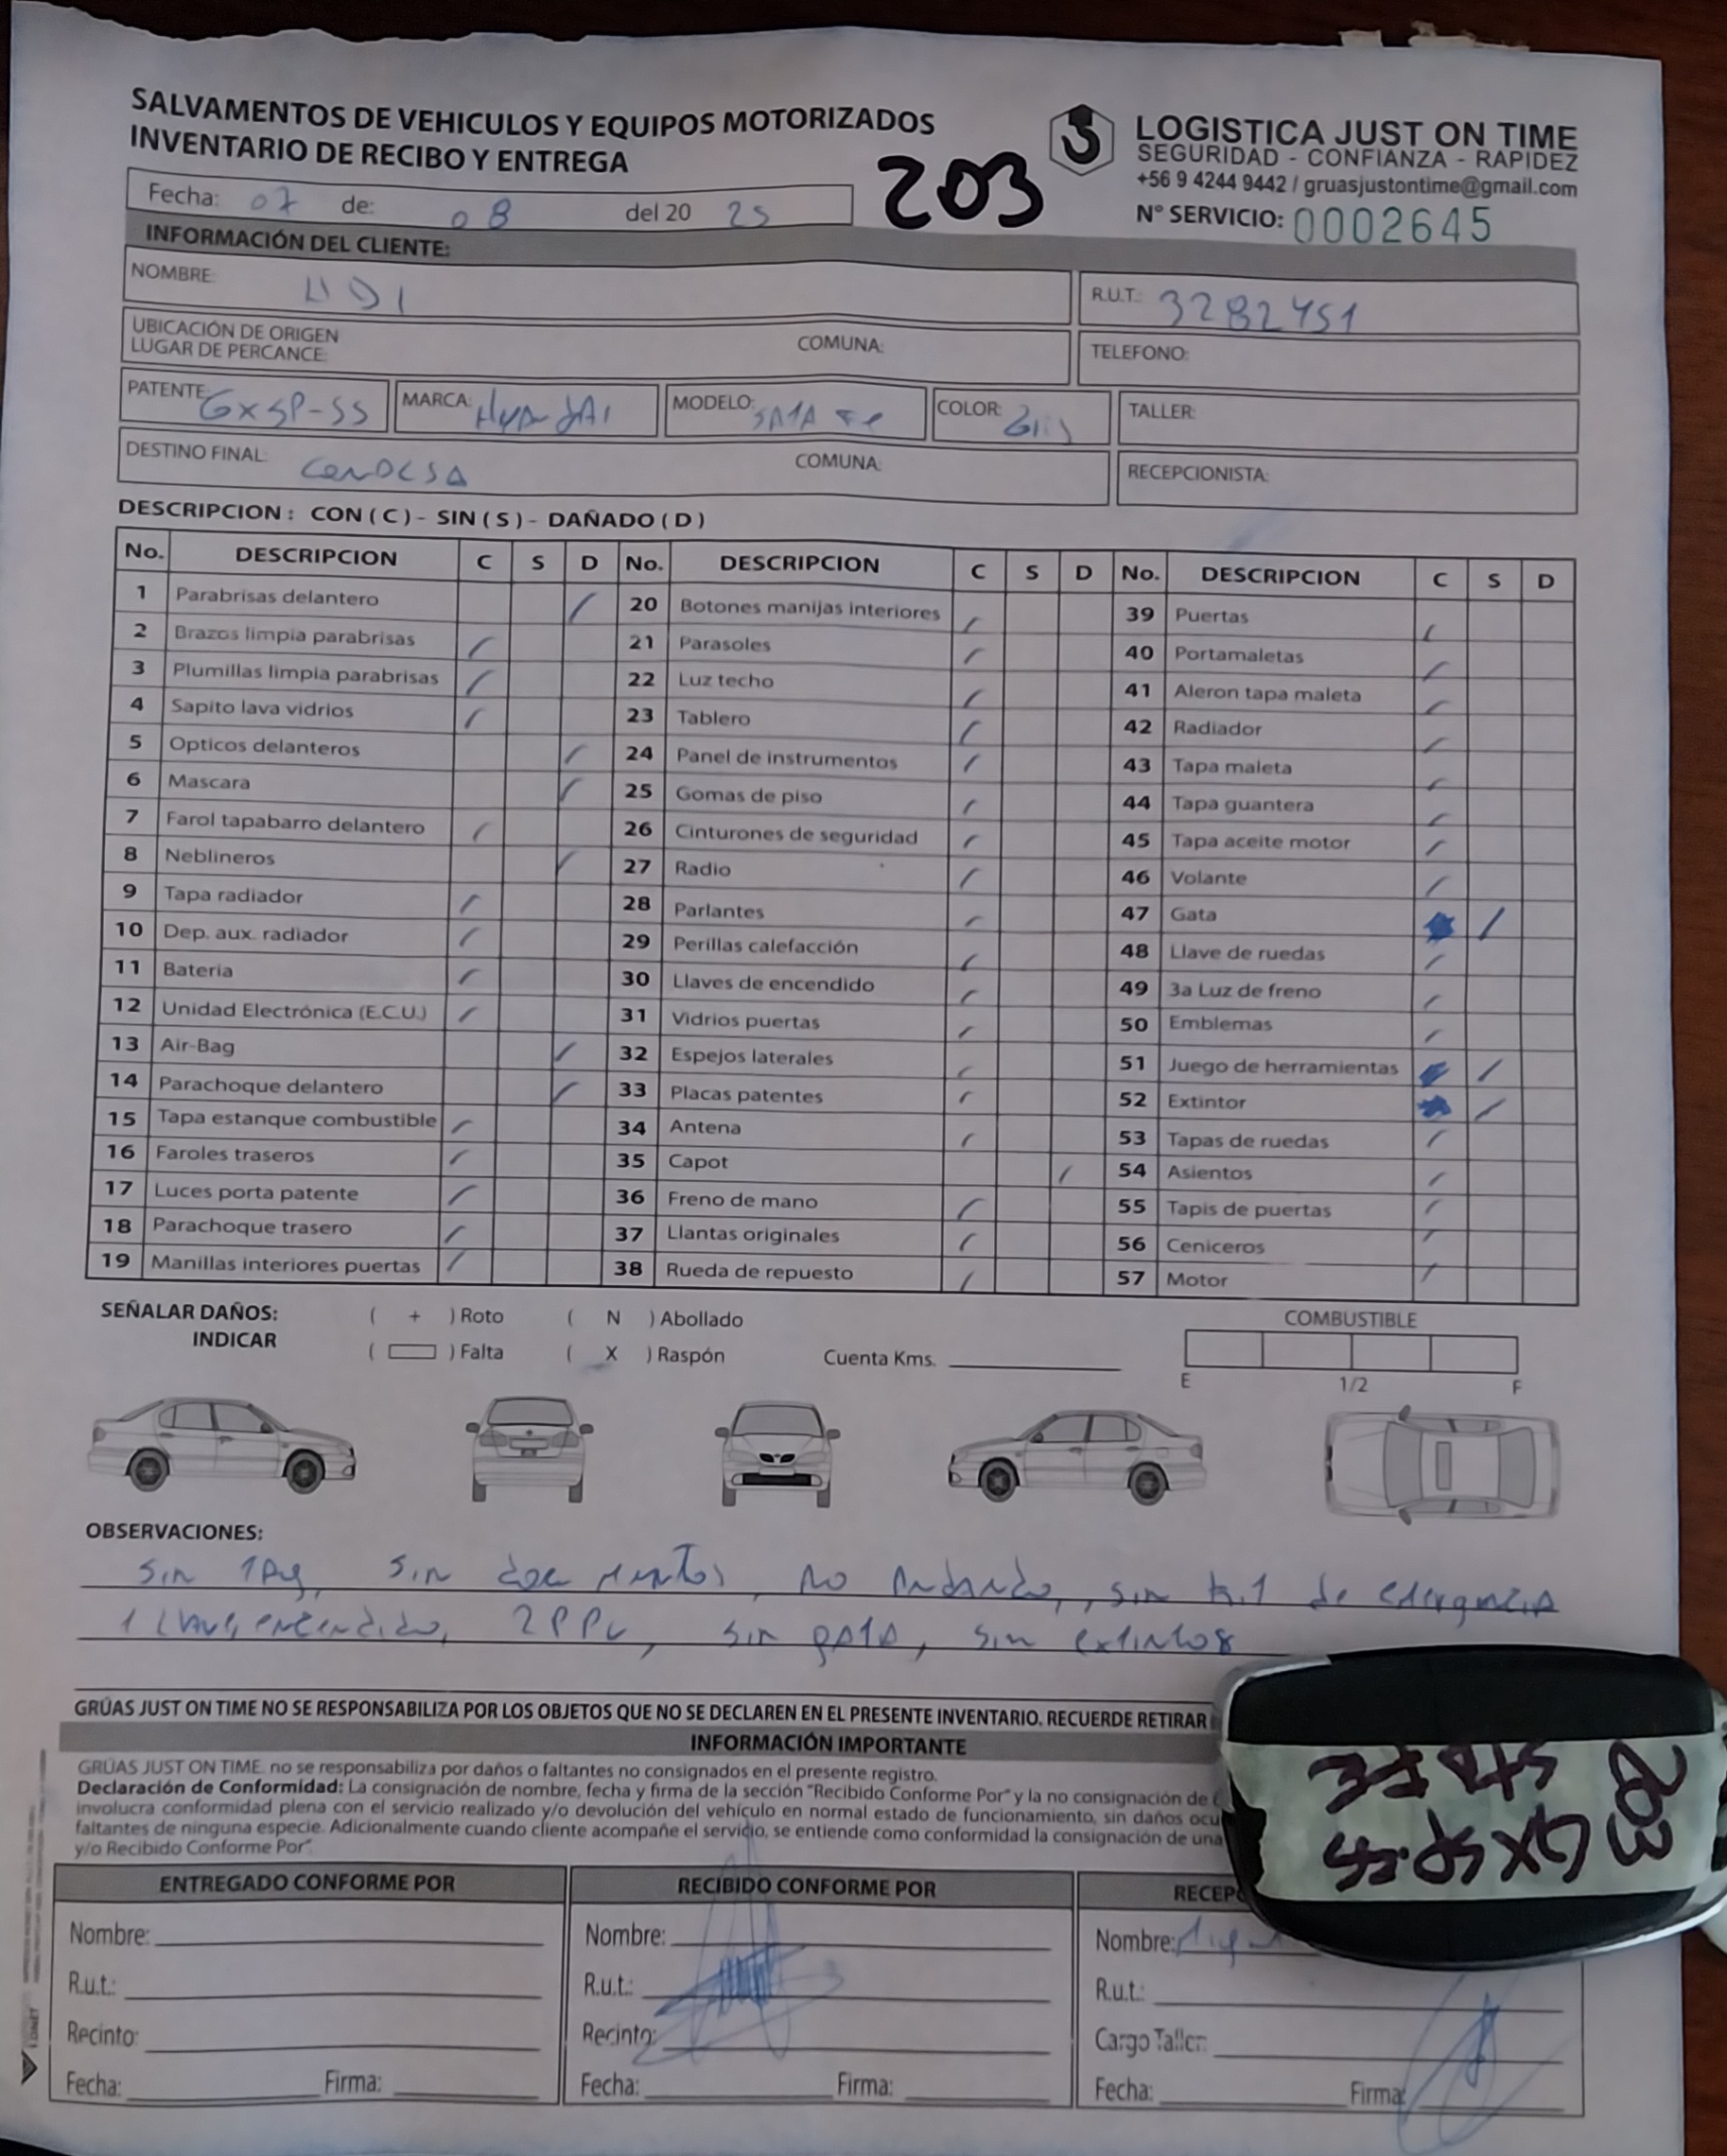 SALVAMENTOS DE VEHICULOS Y EQUIPOS MOTORIZADOS
INVENTARIO DE RECIBO Y ENTREGA
203
LOGISTICA JUST ON TIME
SEGURIDAD - CONFIANZA - RAPIDEZ
+56 9 4244 9442 / gruasjustontime@gmail.com
N° SERVICIO: 0002645
Fecha: 07 de: 08 del 20 25
INFORMACIÓN DEL CLIENTE:
NOMBRE: R.U.T.: 3282451
UBICACIÓN DE ORIGEN
LUGAR DE PERCANCE: COMUNA: TELEFONO:
PATENTE: GXSP-55 MARCA: HyundAi MODELO: SAtA Fe COLOR: Gris TALLER:
DESTINO FINAL: COMUNA: RECEPCIONISTA:
DESCRIPCION : CON ( C ) - SIN ( S ) - DAÑADO ( D )
No. DESCRIPCION C S D No. DESCRIPCION C S D No. DESCRIPCION C S D
1 Parabrisas delantero 20 Botones manijas interiores 39 Puertas
2 Brazos limpia parabrisas 21 Parasoles 40 Portamaletas
3 Plumillas limpia parabrisas 22 Luz techo 41 Aleron tapa maleta
4 Sapito lava vidrios 23 Tablero 42 Radiador
5 Opticos delanteros 24 Panel de instrumentos 43 Tapa maleta
6 Mascara 25 Gomas de piso 44 Tapa guantera
7 Farol tapabarro delantero 26 Cinturones de seguridad 45 Tapa aceite motor
8 Neblineros 27 Radio 46 Volante
9 Tapa radiador 28 Parlantes 47 Gata
10 Dep. aux. radiador 29 Perillas calefacción 48 Llave de ruedas
11 Bateria 30 Llaves de encendido 49 3a Luz de freno
12 Unidad Electrónica (E.C.U.) 31 Vidrios puertas 50 Emblemas
13 Air-Bag 32 Espejos laterales 51 Juego de herramientas
14 Parachoque delantero 33 Placas patentes 52 Extintor
15 Tapa estanque combustible 34 Antena 53 Tapas de ruedas
16 Faroles traseros 35 Capot 54 Asientos
17 Luces porta patente 36 Freno de mano 55 Tapis de puertas
18 Parachoque trasero 37 Llantas originales 56 Ceniceros
19 Manillas interiores puertas 38 Rueda de repuesto 57 Motor
SEÑALAR DAÑOS: ( + ) Roto ( N ) Abollado COMBUSTIBLE
INDICAR ( ) Falta ( X ) Raspón Cuenta Kms.
E 1/2 F
OBSERVACIONES:
sin tAg, sin documentos, no Andando, sin kit de emergencia
1 llave encendido, 2 PPU, sin gata, sin extintor
GRÚAS JUST ON TIME NO SE RESPONSABILIZA POR LOS OBJETOS QUE NO SE DECLAREN EN EL PRESENTE INVENTARIO. RECUERDE RETIRAR
INFORMACIÓN IMPORTANTE
GRÚAS JUST ON TIME. no se responsabiliza por daños o faltantes no consignados en el presente registro.
Declaración de Conformidad: La consignación de nombre, fecha y firma de la sección "Recibido Conforme Por" y la no consignación de
involucra conformidad plena con el servicio realizado y/o devolución del vehículo en normal estado de funcionamiento, sin daños ocu
faltantes de ninguna especie. Adicionalmente cuando cliente acompañe el servicio, se entiende como conformidad la consignación de una
y/o Recibido Conforme Por"
203 GXSP-55
STA FE
ENTREGADO CONFORME POR RECIBIDO CONFORME POR RECEP
Nombre: Nombre: Nombre:
R.u.t.: R.u.t.: R.u.t.:
Recinto: Recinto: Cargo Taller:
Fecha: Firma: Fecha: Firma: Fecha: Firma: